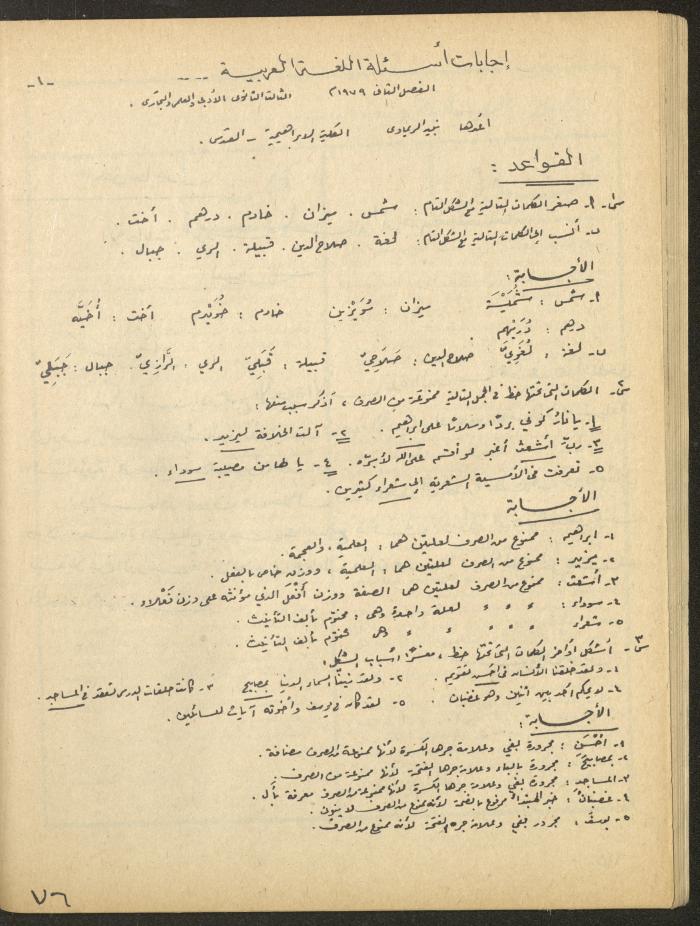 إجابات أسئلة اللغة العربية ....
-١-
الفصل الثاني ١٩٧٩م الثالث الثانوي الأدبي والعلمي والتجاري .
أعدها الكلية الإبراهيمية - القدس .
القواعد :
س١- أ- صغر الكلمات التالية مع الشكل التام : شمس . ميزان . خادم . درهم . أخت .
ب- أنسب إلى الكلمات التالية مع الشكل التام : لغة . صلاح الدين . قبيلة . الري . جبال .
الأجابة :
أ- شمس : شُمَيْسَة ميزان : مُوَيْزين خادم : خُوَيْدم أخت : أُخَيَّه
درهم : دُرَيْهم
ب- لغة : لُغَويّ صلاح الدين : صَلاحيّ قبيلة : قَبَليّ الري : الرَّازيّ . جبال : جَبَليّ
س٢- الكلمات التي تحتها خط في الجمل التالية ممنوعة من الصرف ، أذكر سبب منعها :
١- يا نار كوني بردًا وسلامًا على ابراهيم . ٢- آلت الخلافة ليزيد .
٣- ربّ أشعث أغبر لو أقسم على الله لأبرّه . ٤- يا لها من مصيبة سوداء .
٥- تعرفت في الأمسية الشعرية إلى شعراء كثيرين .
الأجابة
١- ابراهيم : ممنوع من الصرف لعلتين هما : العلمية ، والعجمة .
٢- يزيد : ممنوع من الصرف لعلتين هما : العلمية ، ووزن خاص بالفعل .
٣- أشعث : ممنوع من الصرف لعلتين هما الصفة ووزن أَفْعَل الذي مؤنثه على وزن فَعْلاء .
٤- سوداء : " " " لعلة واحدة وهي : مختوم بألف التأنيث .
٥- شعراء " " " " وهي مختوم بألف التأنيث .
س٣- أشكل أواخر الكلمات التي تحتها خط ، مفسرًا أسباب الشكل :
١- ولقد خلقنا الأنسان في أحسن تقويم . ٢- ولقد زينا السماء الدنيا بمصابيح ٣- كانت حلقات الدرس تعقد في المساجد .
٤- لا يحكم أحد بين اثنين وهو غضبان . ٥- لقد كان في يوسف وأخوته آيات للسائلين .
الأجابة :
١- أحْسَنِ : مجرورة بفي وعلامة جرها الكسرة لأنها ممنوعة من الصرف مضافة .
٢- بمصابيحَ : مجرورة بالباء وعلامة جرها الفتحة لأنها ممنوعة من الصرف .
٣- المساجدِ : مجرورة بفي وعلامة جرها الكسرة لأنها ممنوعة من الصرف معرفة بأل .
٤- غضبانُ : خبر المبتدأ مرفوع بالضمة لأنه ممنوع من الصرف لا ينون .
٥- يوسفَ : مجرور بفي وعلامة جره الفتحة لأنه ممنوع من الصرف .
٧٦